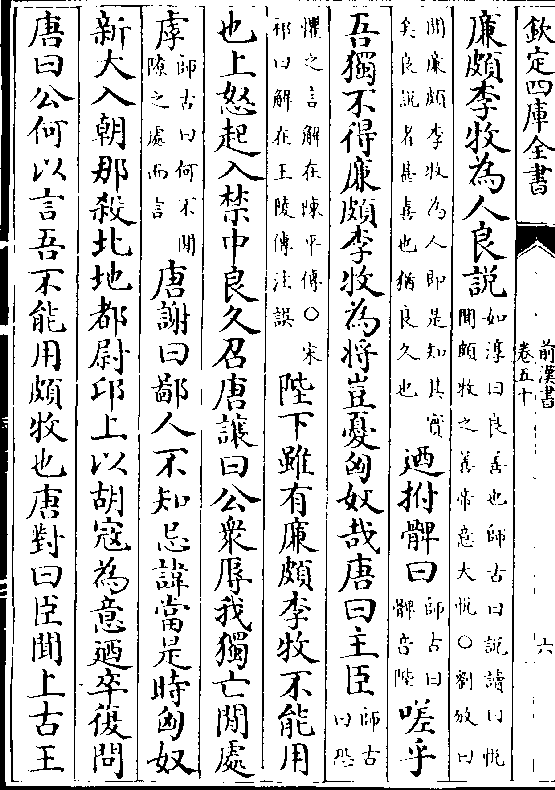 欽定四庫全書
前漢書
卷五十
六
廉頗李牧為人良說如淳曰良善也師古曰説讀曰悦聞頗牧之善帝意大悦○劉攽曰
聞廉頗李牧為人即是知其實矣良說者甚喜也猶良久也廼拊髀曰師古曰髀音陛嗟乎
吾獨不得廉頗李牧為將豈憂匈奴哉唐曰主臣師古曰恐
懼之言解在陳平傳○宋祁曰解在王陵傳注誤陛下雖有廉頗李牧不能用
也上怒起入禁中良久召唐讓曰公衆辱我獨亡閒處
虖師古曰何不閒隙之處而言唐謝曰鄙人不知忌諱當是時匈奴
新大入朝那殺北地都尉卬上以胡寇為意廼卒復問
唐曰公何以言吾不能用頗牧也唐對曰臣聞上古王